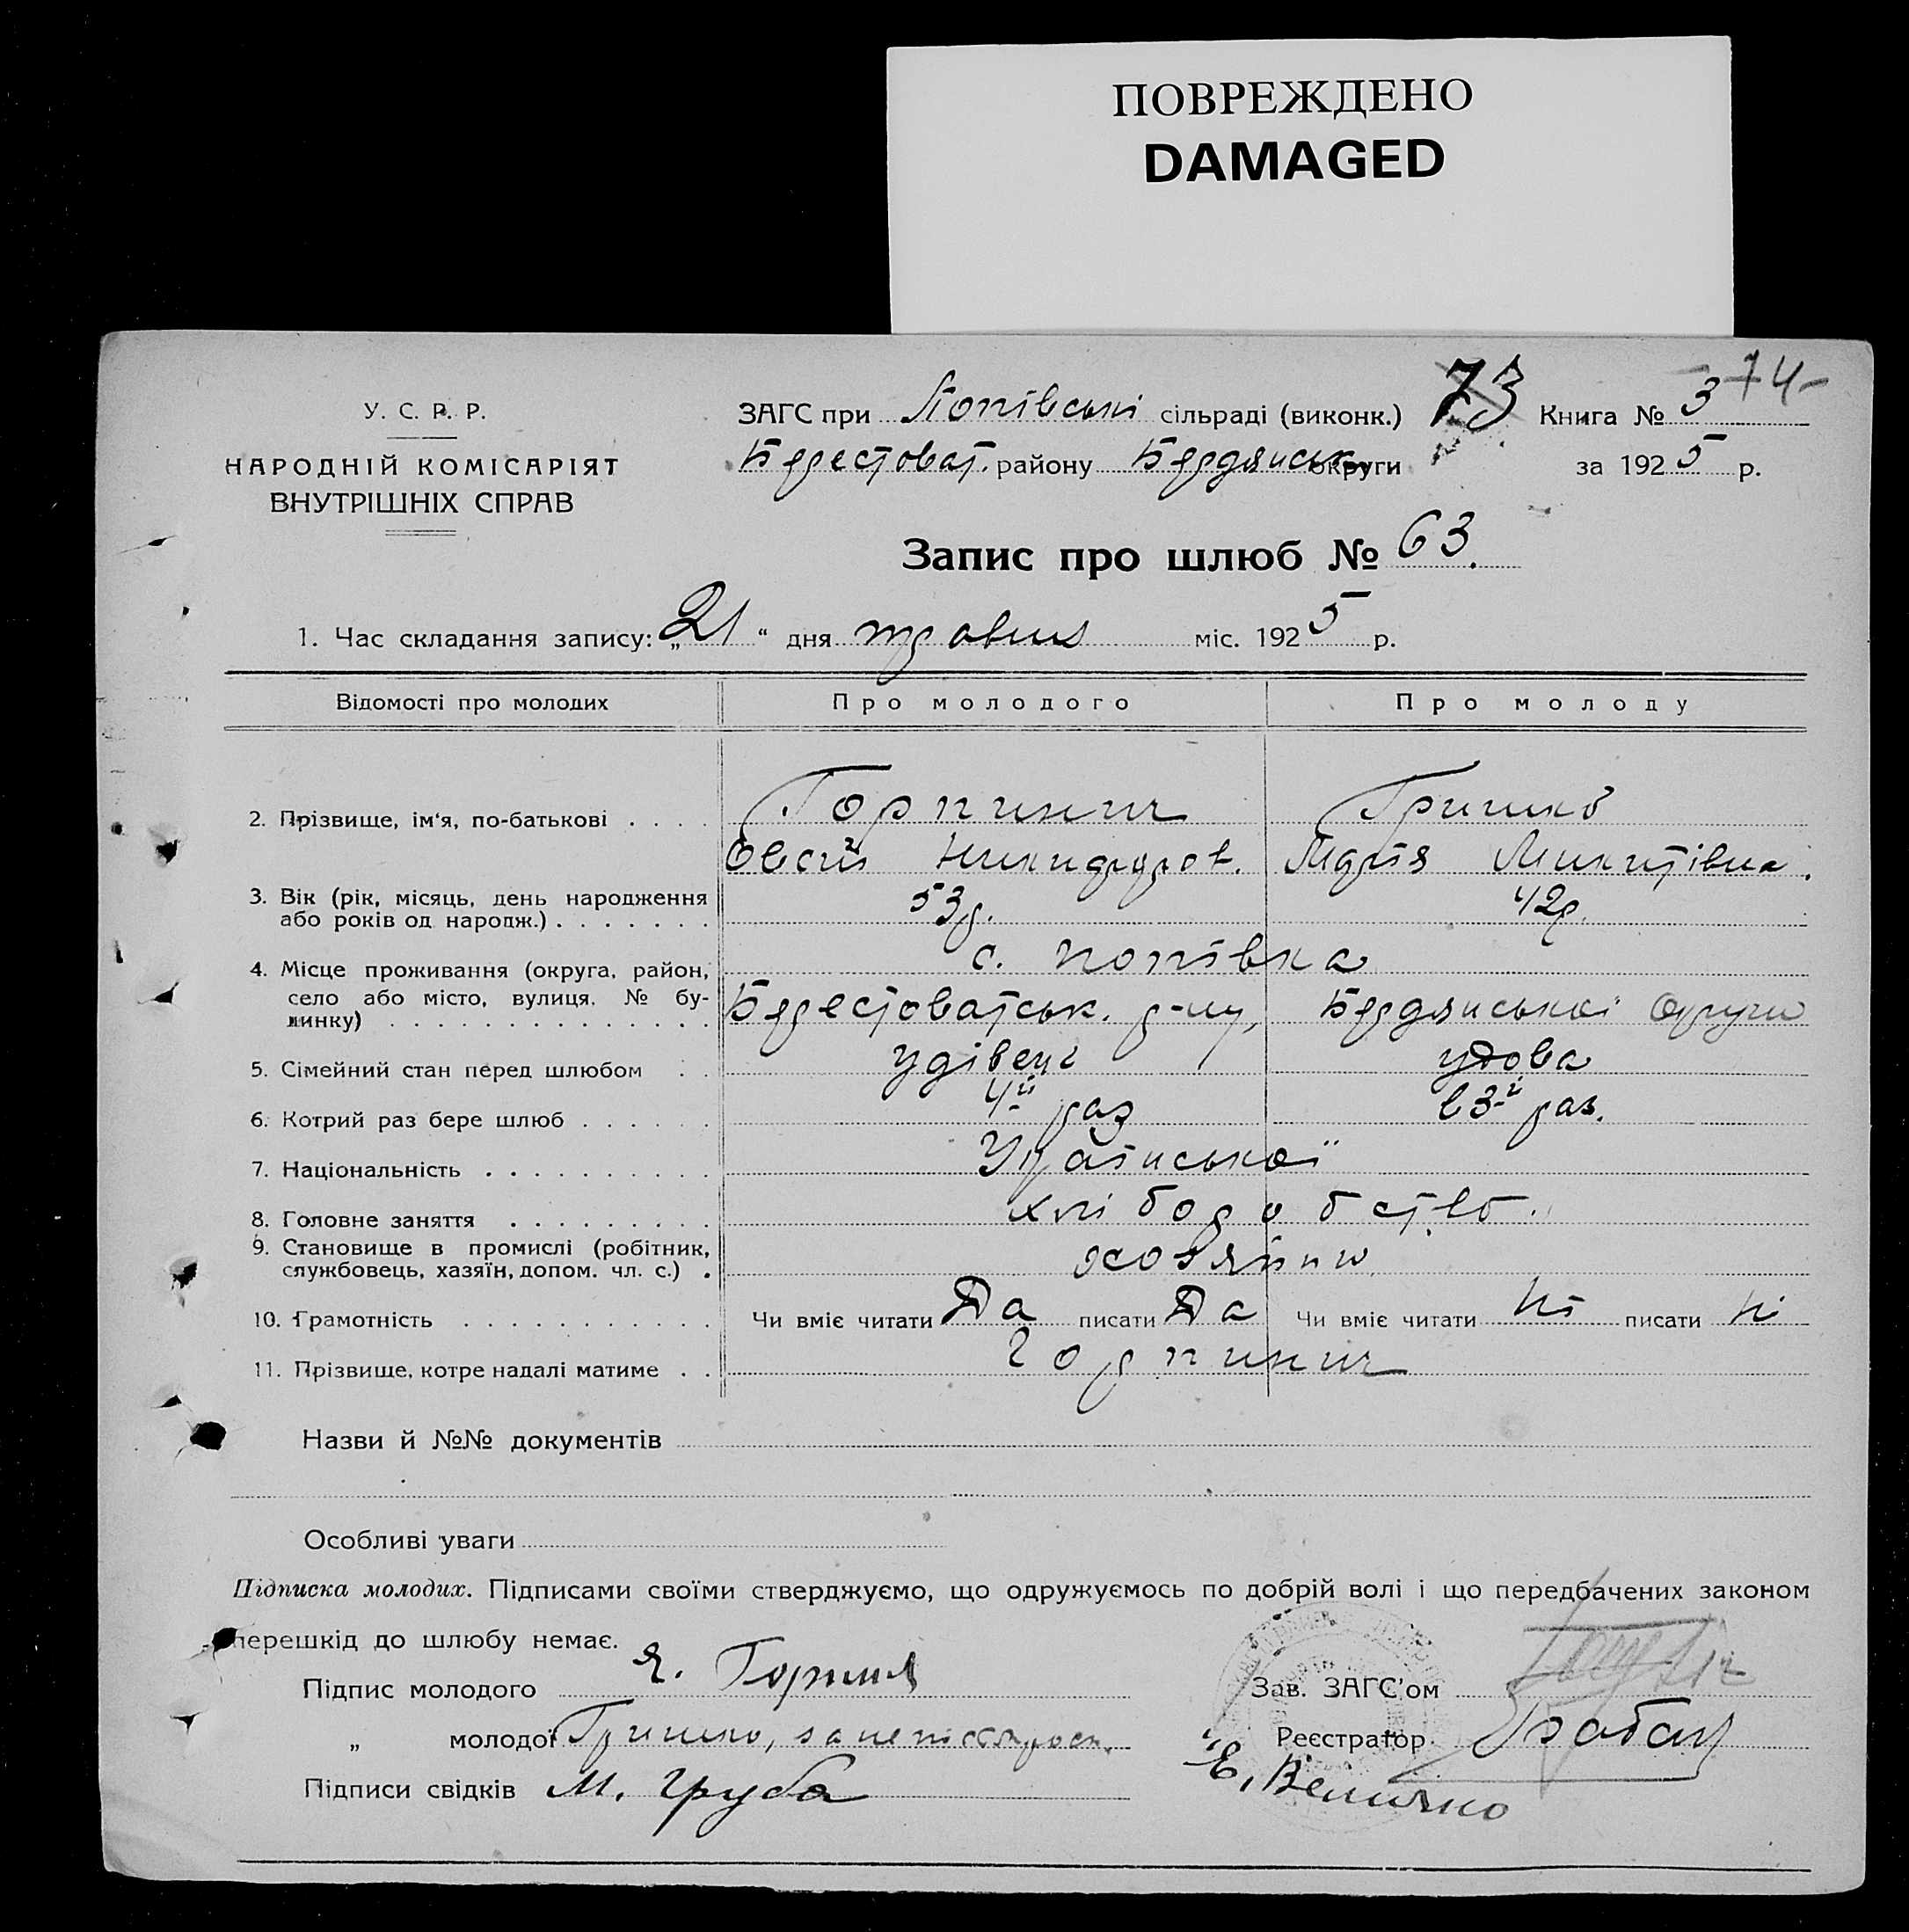 ПОВРЕЖДЕНО
DAMAGED
У. С. Р. Р.
НАРОДНІЙ КОМІСАРІЯТ
ВНУТРІШНІХ СПРАВ
ЗАГС при Попівські сільраді (виконк.) 73 Книга № 3 74
Берестоват. району Бердянськ. округи за 1925 р.
Запис про шлюб № 63.
1. Час складання запису: „21“ дня травня міс. 1925 р.
Відомості про молодих Про молодого Про молоду
2. Прізвище, ім'я, по-батькові . . . . Горпинич Гришко
Овсій Никифоров. Марія Микитівна.
3. Вік (рік, місяць, день народження
або років од народж.) . . . . . . . 53р. 42р.
4. Місце проживання (округа, район,
село або місто, вулиця, № бу-
динку) . . . . . . . . . . . . . . с. Попівка
Берестоватськ. р-ну, Бердянської Округи
5. Сімейний стан перед шлюбом . . удівець удова
6. Котрий раз бере шлюб . . . . . . 4й раз в 3-й раз.
7. Національність . . . . . . . . . . Української
8. Головне заняття . . . . . . . . . хліборобство.
9. Становище в промислі (робітник,
службовець, хазяїн, допом. чл. с.) .
10. Грамотність . . . . . . . . . . . Чи вміє читати Да писати Да Чи вміє читати Ні писати Ні
11. Прізвище, котре надалі матиме . . Горпинич
Назви й №№ документів
Особливі уваги
Підписка молодих. Підписами своїми стверджуємо, що одружуємось по добрій волі і що передбачених законом
перешкід до шлюбу немає.
Підпис молодого Зав. ЗАГС'ом
„ молодої Гришко, за неписьм. Реєстратор
Підписи свідків М. Груба Е. Величко